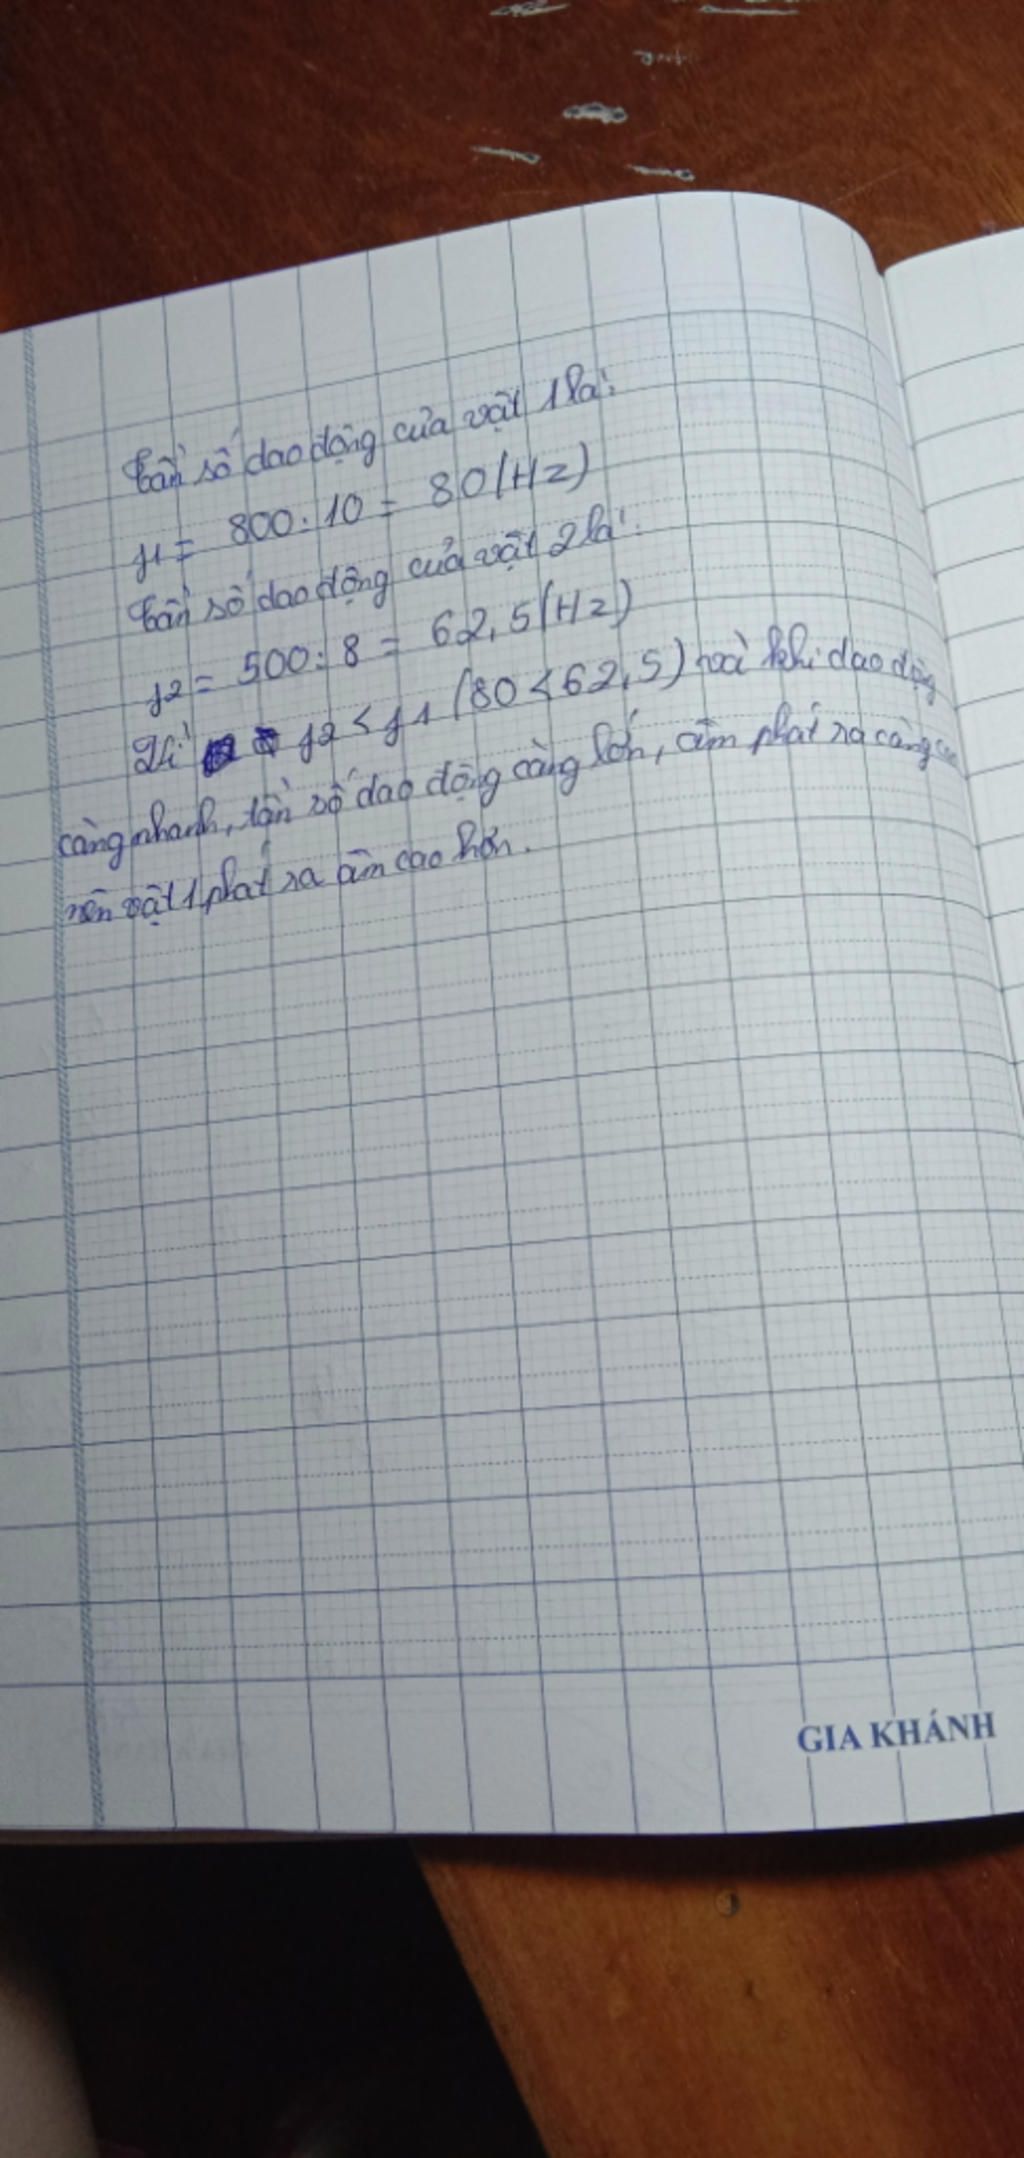 Tần số dao động của vật 1 là:
f1 = 800 : 10 = 80 (Hz)
Tần số dao động của vật 2 là:
f2 = 500 : 8 = 62,5 (Hz)
Vì f2 < f1 (80 < 62,5) mà khi dao động
càng nhanh, tần số dao động càng lớn, âm phát ra càng cao
nên vật 1 phát ra âm cao hơn.
GIA KHÁNH